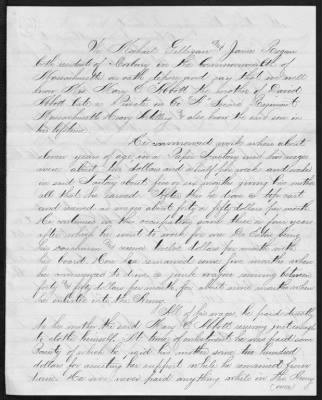 We Michael Gilligan and James Rogan
both residents of Roxbury in the Commonwealth of
Massachusetts on oath depose and say that we well
know Mrs. Mary C. Abbott the mother of David
Abbott late a Private in Co "F" Second Regiment
Massachusetts Heavy Artillery & also knew the said son in
his lifetime.
He commenced work when about
eleven years of age in a Paper Factory and his wages
were about two dollars and a half per week and works
in said Factory about five or six months giving his mother
all that he earned. After this he drove a top cart
and earned in wages about forty or fifty dollars per month
He continued in the occupation some three or four years
after which he went to work for one Dr. being
his coachman and earned twelve dollars per month with
his board. Here he remained some five months when
he commenced to drive a junk wagon earning between
forty and fifty dollars per month for about nine months when
he enlisted into the Army.
All of his wages he paid directly
to his mother the said Mary C. Abbott reserving just enough
to clothe himself. At time of enlistment he was paid some
bounty of which he paid his mother some two hundred
dollars for assisting her support while he remained from
home. He sent never paid anything while in the Army
(over)